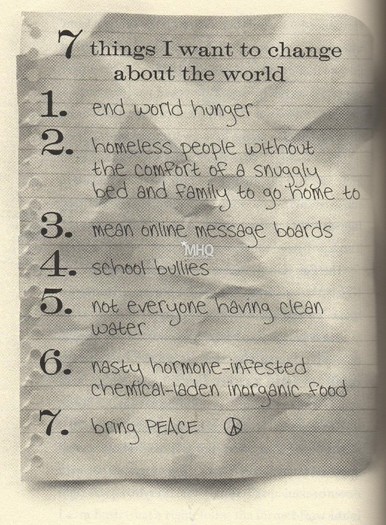 7 things I want to change
about the world
1. end world hunger
2. homeless people without
the comfort of a snuggly
bed and family to go home to
3. mean online message boards
MHQ
4. school bullies
5. not everyone having clean
water
6. nasty hormone-infested
chemical-laden inorganic food
7. bring PEACE ☮